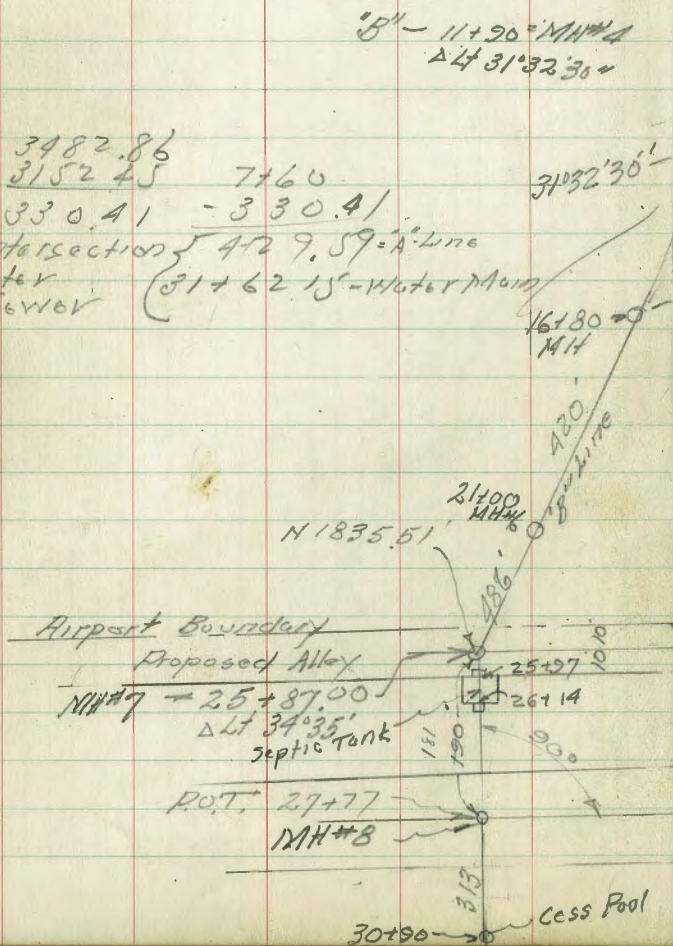 "B" - 11+90 = MH#4
Δ Lt 31°32'30"
3482.86
3152 45
330.41
7+60
-330.41
4+29.59 = "A"-Line
31+62 15 - Water Main
tersection
ter
ewer
31°32'30"
16+80
MH
420'
"B" Line
21+00
MH#6
N 1835.51'
486'
Airport Boundary
Proposed Alley
MH#7 - 25+87.00
Δ Lt 34°35'
Septic Tank
25+97
26+14
1010'
181
190
90°
P.O.T. 27+77
MH#8
313
30+90
Cess Pool